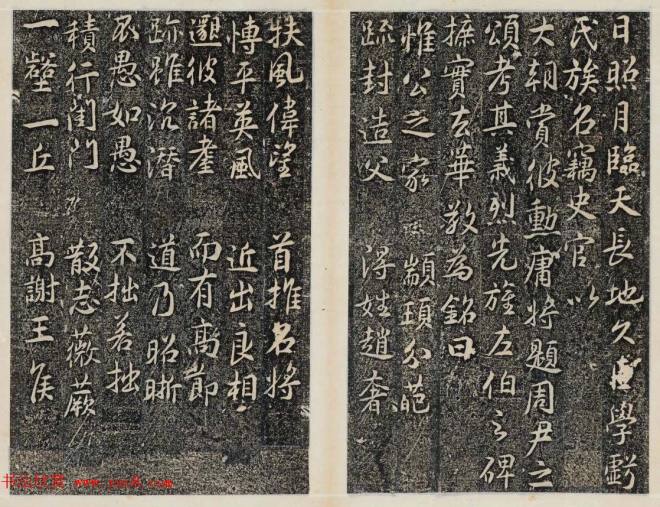 日照月臨天長地久學虧
氏族名竊史官以
大朝賞彼勳庸將題周尹之
頌考其義烈先旌左伯之碑
摭實去華敬為銘曰
惟公之家 顓頊分葩
疏封造父 得姓趙奢
扶風偉望 首推名將
愽平英風 近出良相
邈彼諸 而有高節
跡雖沉潛 道乃昭晰
愚如愚 不拙若拙
積行閨門 散志薇蕨
一壑一丘 高謝王侯